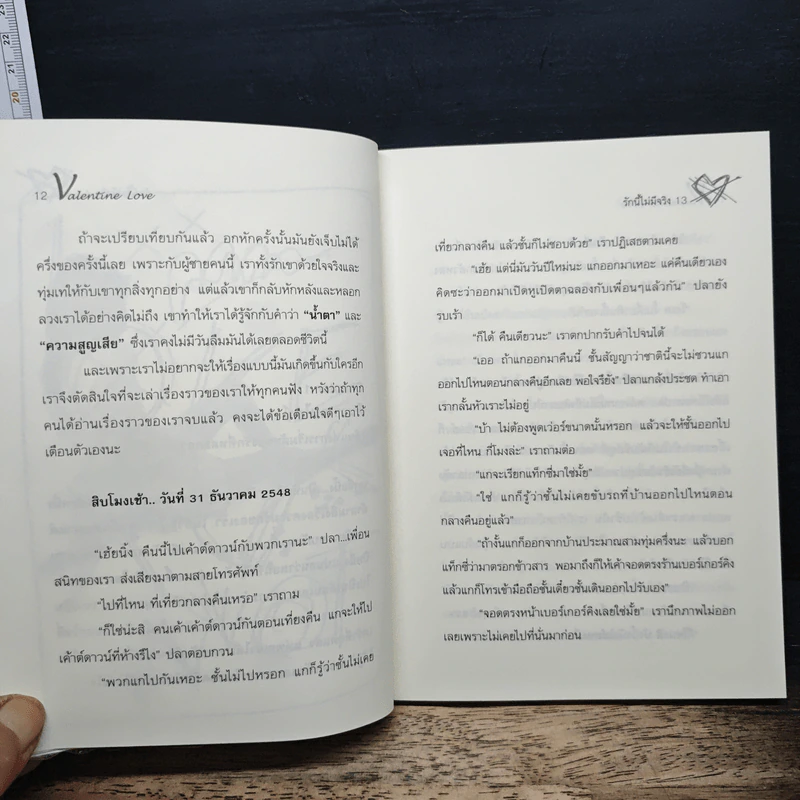 23
22
21
20
12 Valentine Love
ถ้าจะเปรียบเทียบกันแล้ว อกหักครั้งนั้นมันยังเจ็บไม่ได้
ครึ่งของครั้งนี้เลย เพราะกับผู้ชายคนนี้ เราทั้งรักเขาด้วยใจจริงและ
ทุ่มเทให้กับเขาทุกสิ่งทุกอย่าง แต่แล้วเขาก็กลับหักหลังและหลอก
ลวงเราได้อย่างคิดไม่ถึง เขาทำให้เราได้รู้จักกับคำว่า “น้ำตา” และ
“ความสูญเสีย” ซึ่งเราคงไม่มีวันลืมมันได้เลยตลอดชีวิตนี้
และเพราะเราไม่อยากจะให้เรื่องแบบนี้มันเกิดขึ้นกับใครอีก
เราจึงตัดสินใจที่จะเล่าเรื่องราวของเราให้ทุกคนฟัง หวังว่าถ้าทุก
คนได้อ่านเรื่องราวของเราจบแล้ว คงจะได้ข้อเตือนใจดีๆเอาไว้
เตือนตัวเองนะ
สิบโมงเช้า.. วันที่ 31 ธันวาคม 2548
“เฮ้ยนิ้ง คืนนี้ไปเค้าต์ดาวน์กับพวกเรานะ” ปลา...เพื่อน
สนิทของเรา ส่งเสียงมาตามสายโทรศัพท์
“ไปที่ไหน ที่เที่ยวกลางคืนเหรอ” เราถาม
“ก็ใช่น่ะสิ คนเค้าเค้าต์ดาวน์กันตอนเที่ยงคืน แกจะให้ไป
เค้าต์ดาวน์ที่ห้างรึไง” ปลาตอบกวน
“พวกแกไปกันเหอะ ชั้นไม่ไปหรอก แกก็รู้ว่าชั้นไม่เคย
รักนี้ไม่มีจริง 13
เที่ยวกลางคืน แล้วชั้นก็ไม่ชอบด้วย” เราปฏิเสธตามเคย
“เฮ้ย แต่นี่มันวันปีใหม่นะ แกออกมาเหอะ แค่คืนเดียวเอง
คิดซะว่าออกมาเปิดหูเปิดตาฉลองกับเพื่อนๆแล้วกัน” ปลายัง
รบเร้า
“ก็ได้ คืนเดียวนะ” เราตกปากรับคำไปจนได้
“เออ ถ้าแกออกมาคืนนี้ ชั้นสัญญาว่าชาตินี้จะไม่ชวนแก
ออกไปไหนตอนกลางคืนอีกเลย พอใจรึยัง” ปลาแกล้งประชด ทำเอา
เรากลั้นหัวเราะไม่อยู่
“บ้า ไม่ต้องพูดเว่อร์ขนาดนั้นหรอก แล้วจะให้ชั้นออกไป
เจอที่ไหน กี่โมงล่ะ” เราถามต่อ
“แกจะเรียกแท็กซี่มาใช่มั้ย”
“ใช่ แกก็รู้ว่าชั้นไม่เคยขับรถที่บ้านออกไปไหนตอน
กลางคืนอยู่แล้ว”
“ถ้างั้นแกก็ออกจากบ้านประมาณสามทุ่มครึ่งนะ แล้วบอก
แท็กซี่ว่ามาตรอกข้าวสาร พอมาถึงก็ให้เค้าจอดตรงร้านเบอร์เกอร์คิง
แล้วแกก็โทรเข้ามือถือชั้นเดี๋ยวชั้นเดินออกไปรับเอง”
“จอดตรงหน้าเบอร์เกอร์คิงเลยใช่มั้ย” เรานึกภาพไม่ออก
เลยเพราะไม่เคยไปที่นั่นมาก่อน